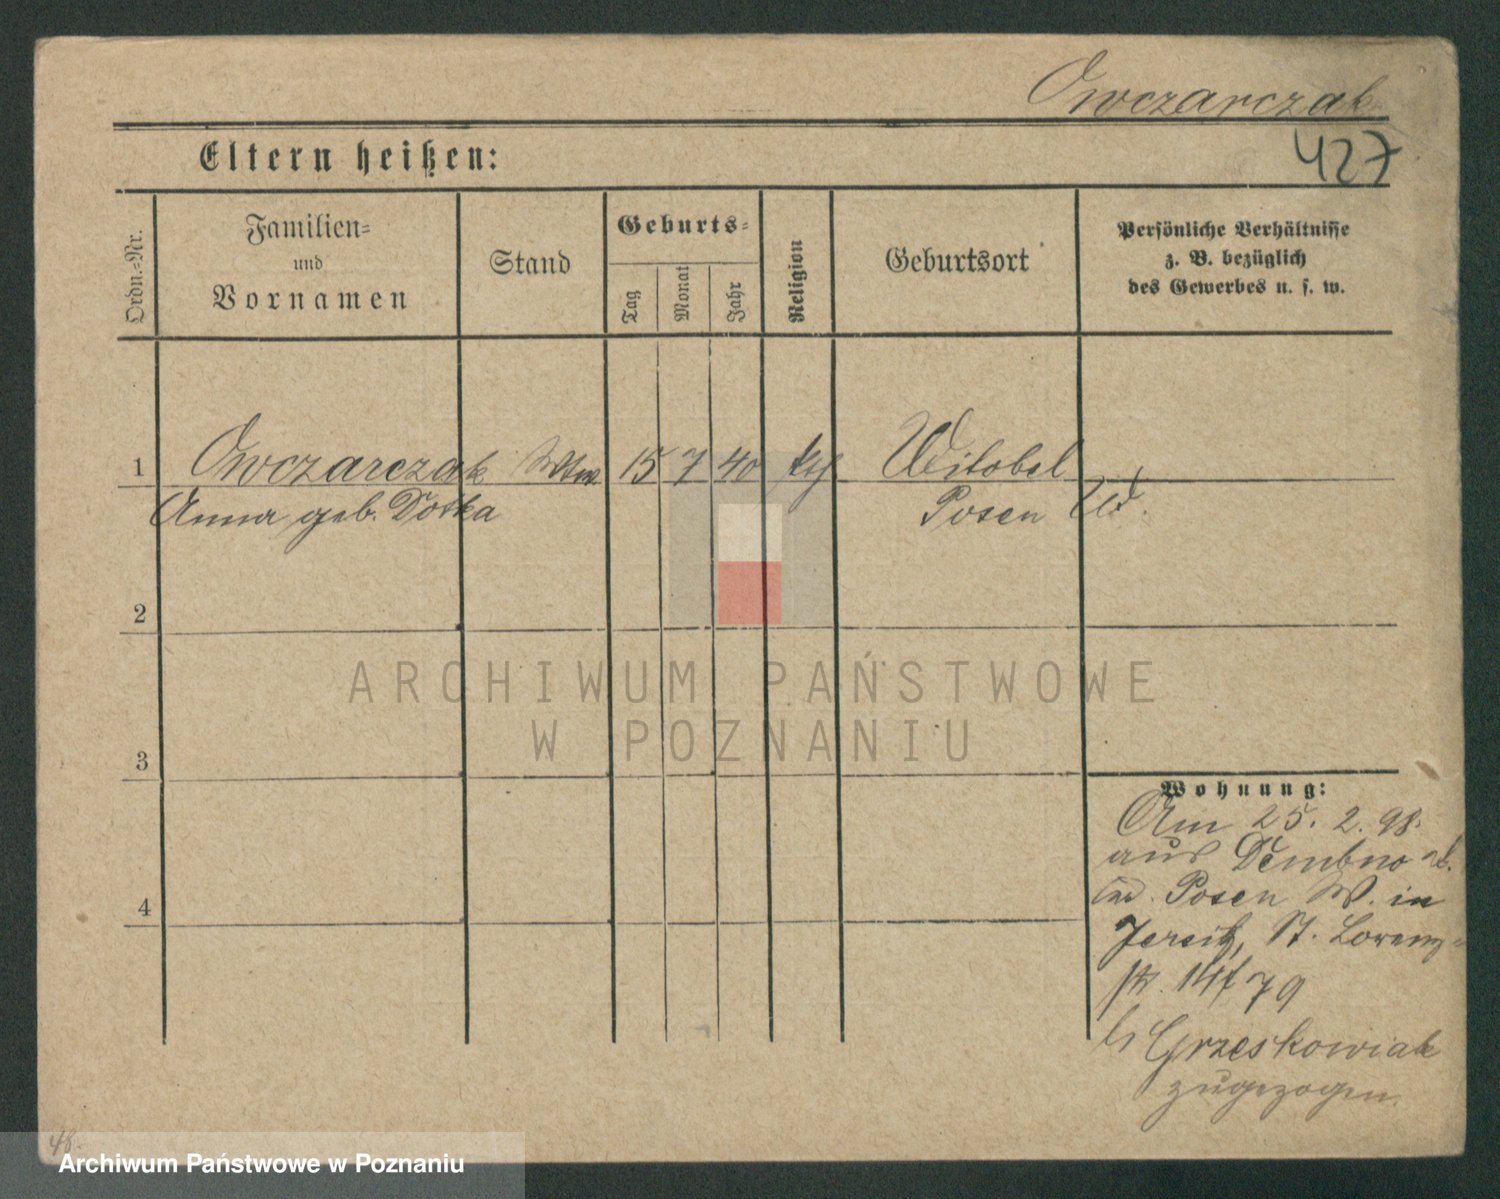 Owczarczak
427
Eltern heißen:
Ordn.-Nr.
Familien-
und
Vornamen
Stand
Geburts-
Tag
Monat
Jahr
Religion
Geburtsort
Persönliche Verhältnisse
z. B. bezüglich
des Gewerbes u. s. w.
1 Owczarczak Wtw 15 7 40 kth Witobel
Anna geb. Dotka Posen
2
ARCHIWUM PAŃSTWOWE
W POZNANIU
3
4
Wohnung:
Am 25. 2. 98.
aus Dembno
Posen W. in
Jersitz, St. Lorenz-
str. 14
b/ Grzeskowiak
zugezogen.
Archiwum Państwowe w Poznaniu